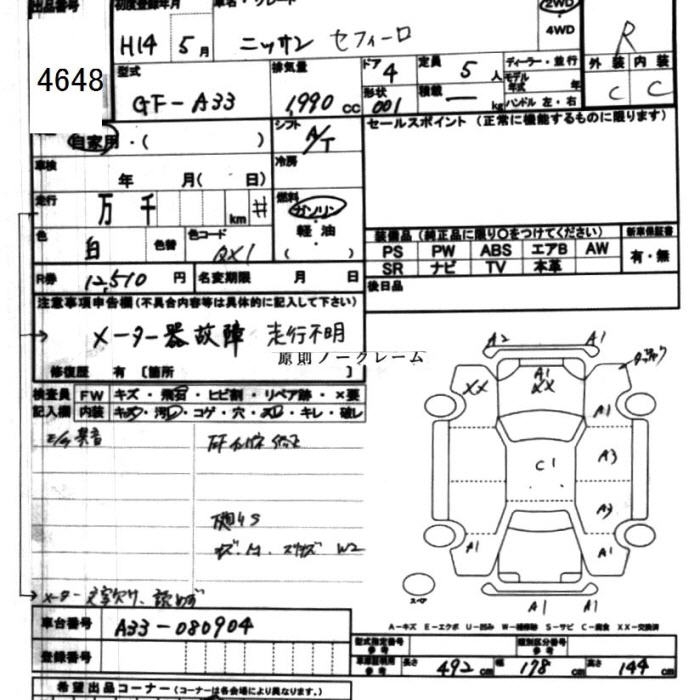 出品番号
4648
初度登録年月
H14 5月
車名・グレード
ニッサン セフィーロ
2WD
4WD
R
型式
GF-A33
排気量
1,990 cc
ドア 4
形状 001
定員 5 人
積載 — kg
ディーラー・並行
モデル年式 年
ハンドル 左・右
外装 内装
C C
自家用・( )
シフト A/T
セールスポイント (正常に機能するものに限ります)
車検 年 月( 日)
冷房
走行 万 千 km #
燃料 ガソリン
軽油
( )
色 白 色替 色コード QX1
装備品 (純正品に限り○をつけてください)
新車保証書
PS PW ABS エアB AW
有・無
SR ナビ TV 本革
R券 12,510 円 名変期限 月 日
後日品
注意事項申告欄 (不具合内容等は具体的に記入して下さい)
メーター器故障 走行不明
原則ノークレーム
修復歴 有 [箇所 ]
検査員 FW キズ・飛石・ヒビ割・リペア跡・×要
記入欄 内装 キズ・汚レ・コゲ・穴・スレ・キレ・破レ
E/g 異音
W2
メーター文字欠け、読めず
A2 A1
XX A1 XX
A1
A3
C1
A3
A1 A1
A1 A1
スペア
A-キズ E-エクボ U-凹み W-補修跡 S-サビ C-腐食 XX-交換済
車台番号 A33-080904
登録番号
型式指定番号 参考
類別区分番号 参考
車庫証明用 参考 長さ 492 cm 幅 178 cm 高さ 144 cm
希望出品コーナー (コーナーは各会場により異なります。)